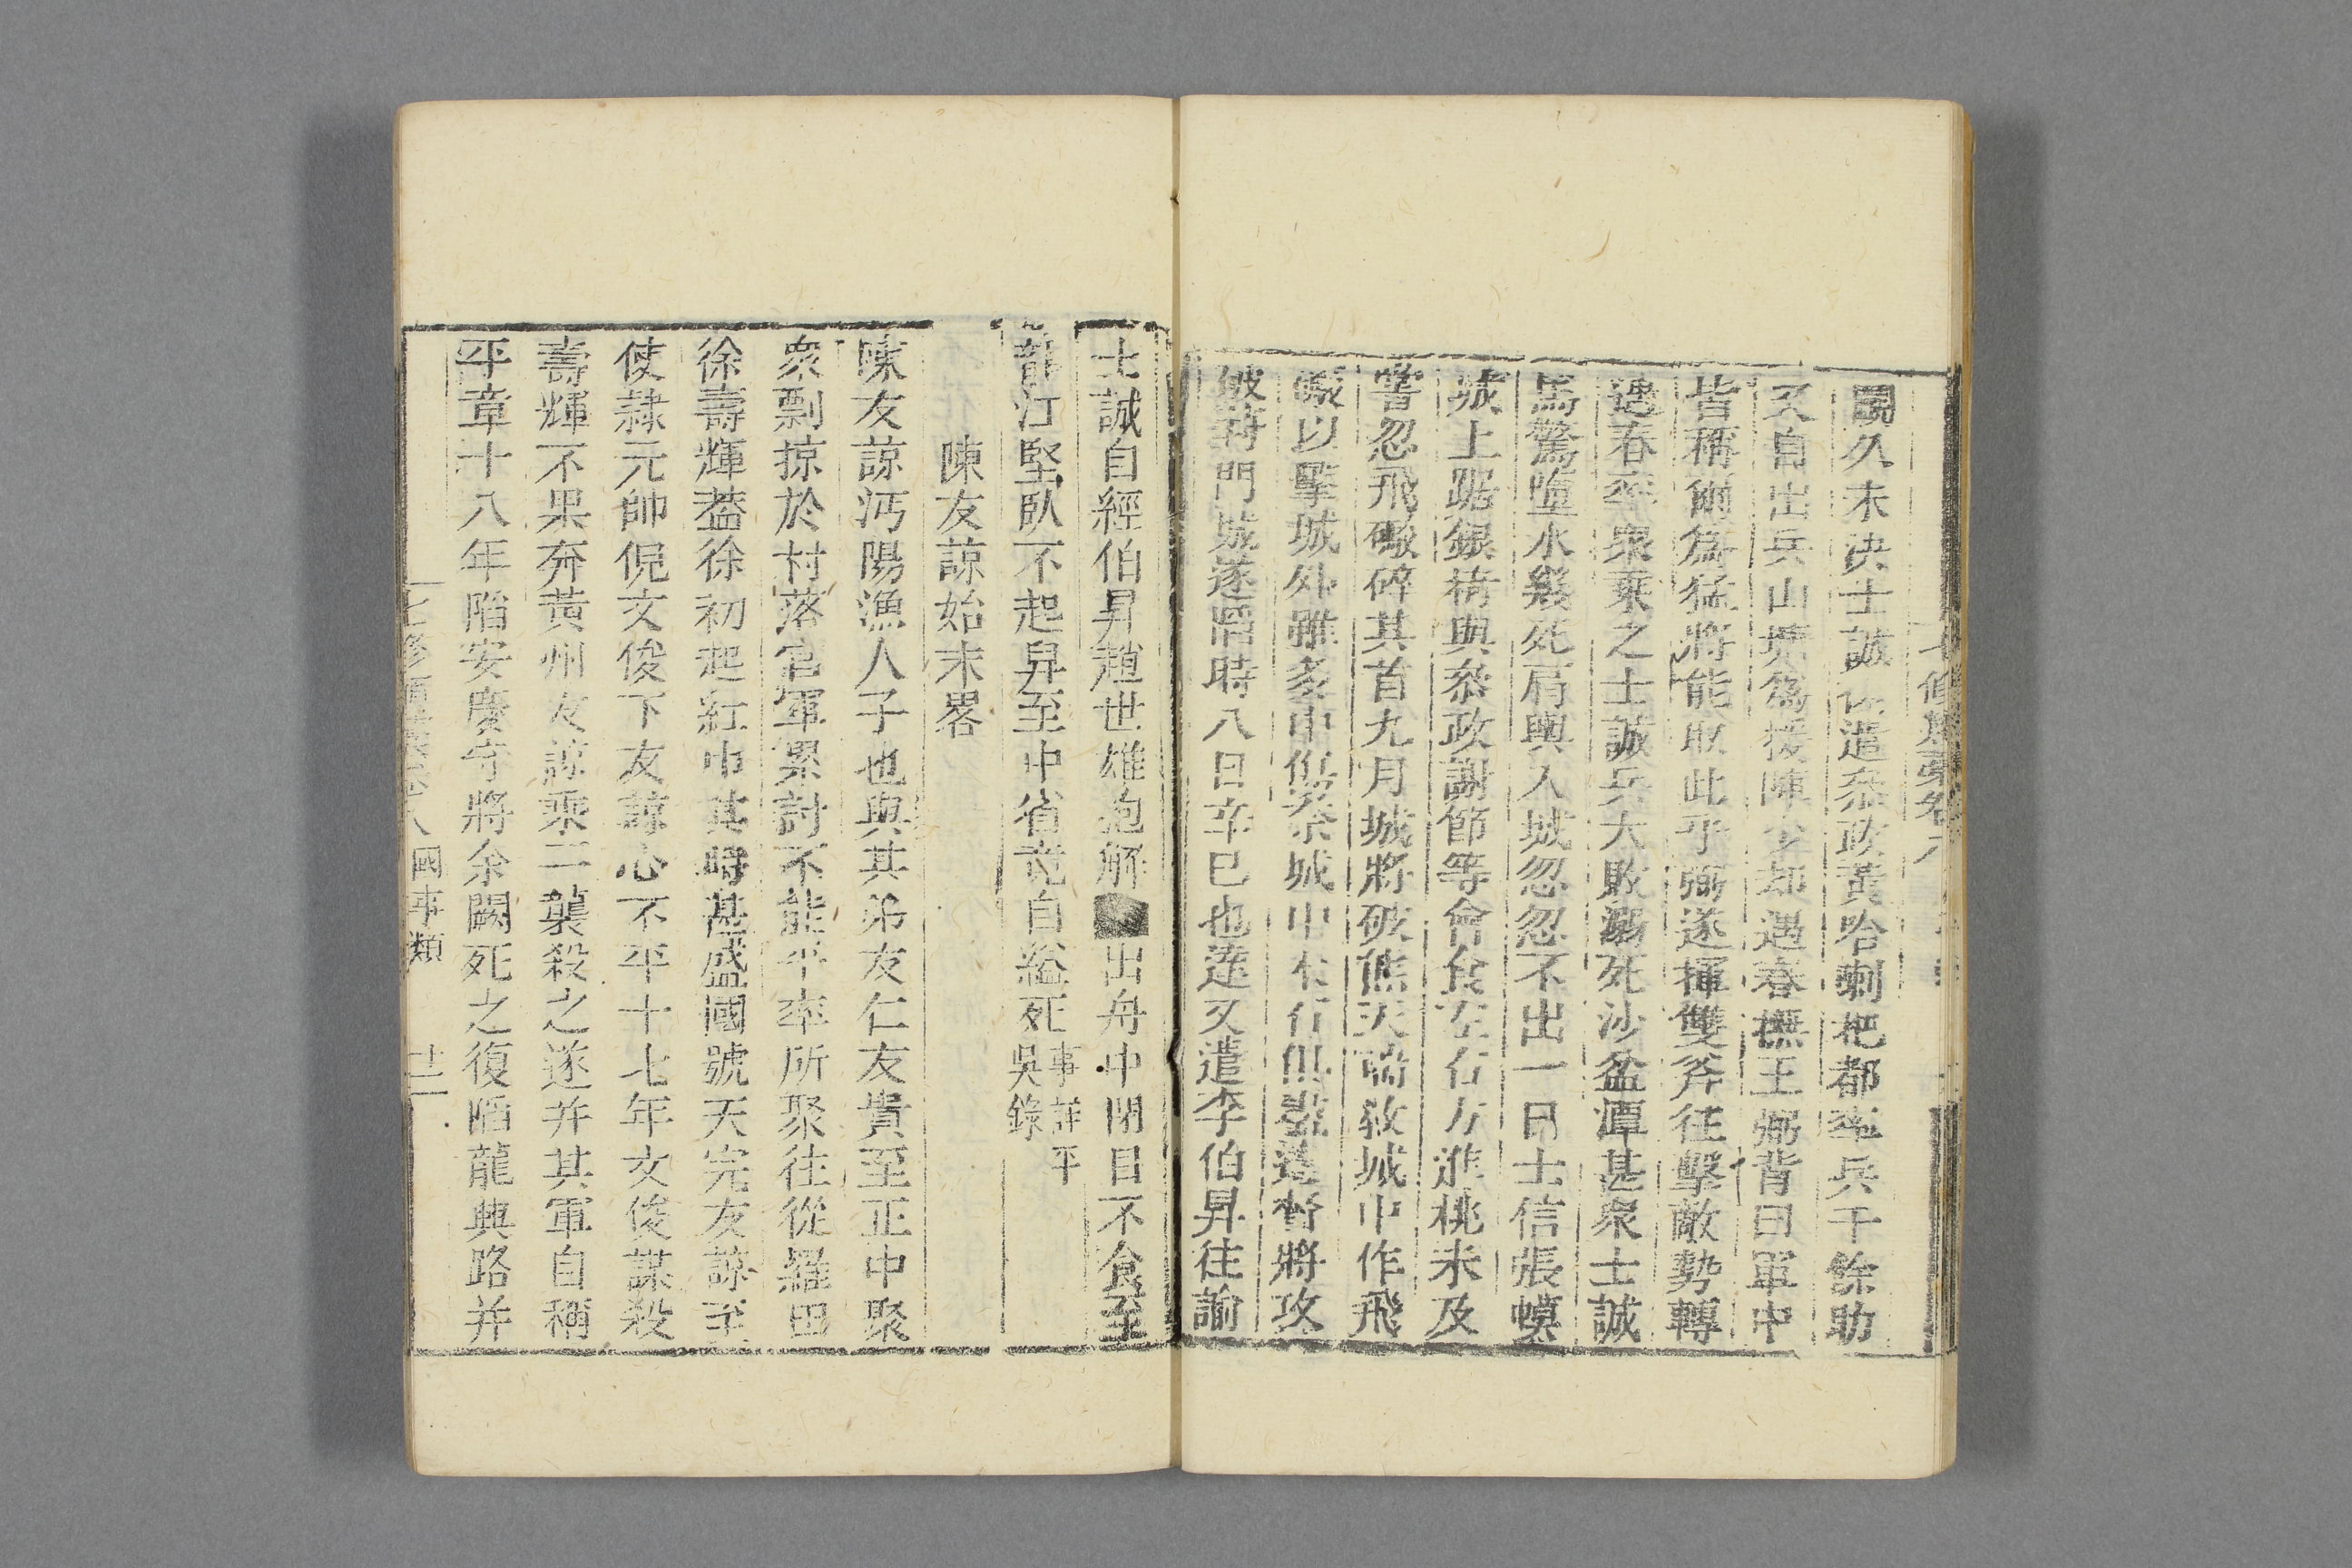 七修類藁卷八
鬬久未決士誠復遣叅政黃哈喇把都率兵千餘助
又自出兵山塘爲援陣少却遇春撫王弼背曰軍中
皆稱爾爲猛將能取此乎弼遂揮雙斧往擊敵勢轉
遇春率衆乘之士誠兵大敗溺死沙盆潭甚衆士誠
馬驚墮水幾死肩輿入城忽忽不出一日士信張幙
城上踞銀椅與叅政謝節等會食左右方進桃未及
嘗忽飛礮碎其首九月城將破熊天瑞敎城中作飛
礮以擊城外雖多中傷奈城中木石俱盡達督將攻
破葑門城遂陷時八日辛巳也達又遣李伯昇往諭
士誠自經伯昇趙世雄抱解出舟中閉目不食至
龍江堅臥不起舁至中省竟自縊死事詳平吳錄
陳友諒始末畧
陳友諒沔陽漁人子也與其弟友仁友貴至正中聚
衆剽掠於村落官軍累討不能平率所聚往從羅田
徐壽輝葢徐初起紅巾其時甚盛國號天完友諒至
使隷元帥倪文俊下友諒心不平十七年文俊謀殺
壽輝不果奔黃州友諒乘一襲殺之遂并其軍自稱
平章十八年陷安慶守將余闕死之復陷龍興路并
七修類藁卷八 國事類 廿二